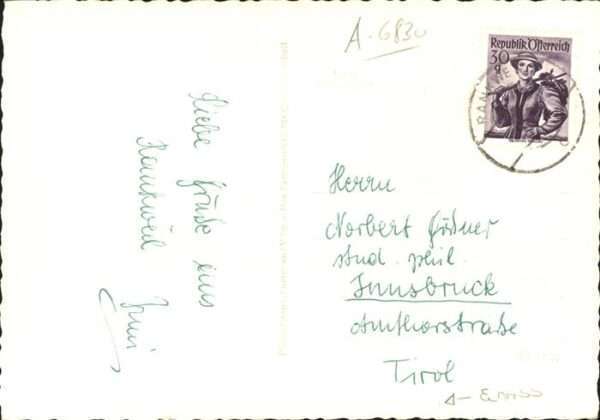 A-6830
Republik Österreich
30 g
RANKWE
Liebe Grüße aus
Rankweil
Herrn
Norbert
stud. phil.
Innsbruck
Amthorstraße
Tirol